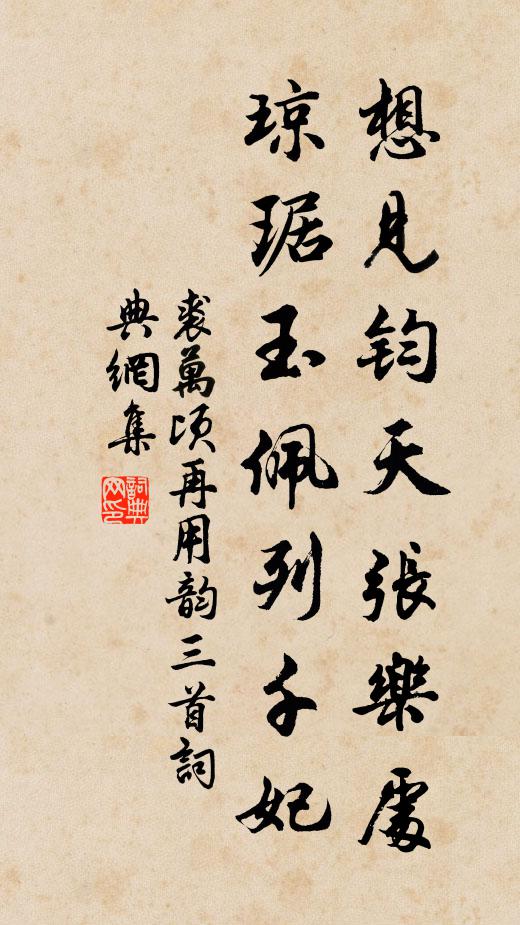 想見鈞天張樂處
琼琚玉佩列千妃
裘萬頃再用韵三首詞
典網集
詞典网印